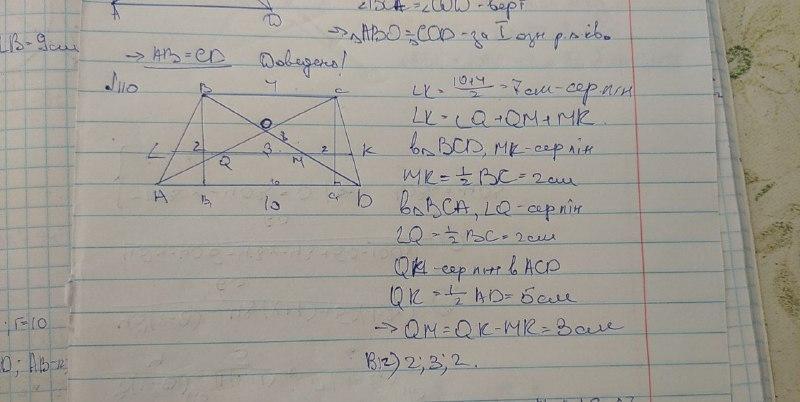 A D
∠BCA = ∠COD - верт
LB = 9см
⇒ △ABO = △COD - за I озн р. \ків.
→ AB = CD Доведено!
№110
B 4 C
O
3
L 2 Q 3 M 2 K
A B₁ 10 C₁ D
LK = (10+4)/2 = 7 см - сер лін
LK = LQ + QM + MK
в △BCD, MK - сер лін
MK = 1/2 BC = 2 см
в △BCA, LQ - сер лін
LQ = 1/2 BC = 2 см
QK - сер лін в ACD
QK = 1/2 AD = 5 см
→ QM = QK - MK = 3 см
Від) 2; 3; 2.
r = 10
D; AB = K